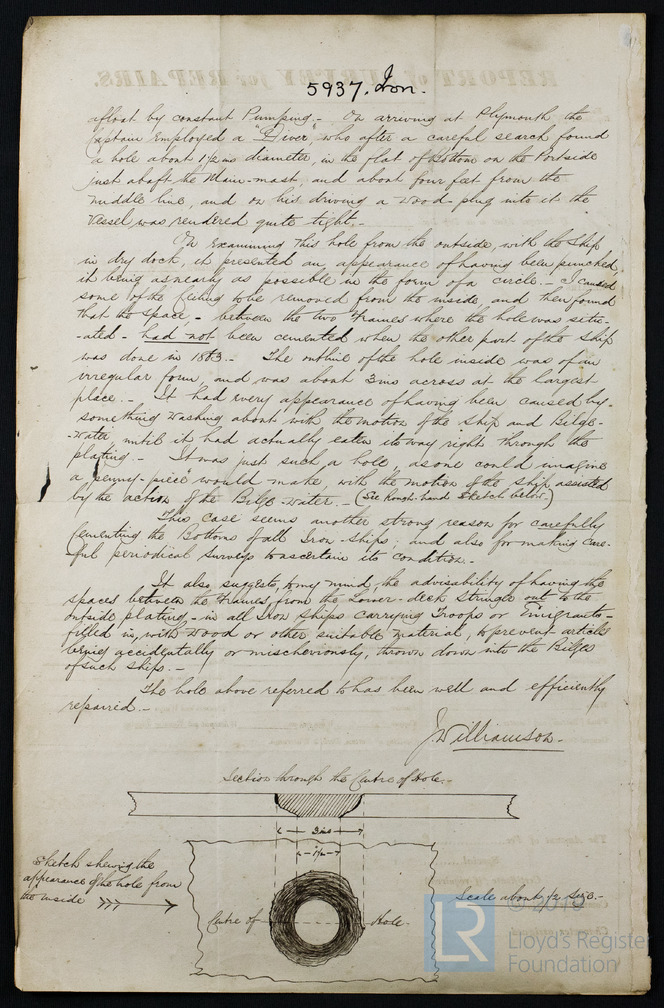 5937. Iron.
afloat by constant Pumping. - On arriving at Plymouth the
Captain Employed a "Diver" who after a careful search found
a hole about 1½ ins diameter, in the flat of Bottom on the Portside
just abaft the Main-mast, and about four feet from the
middle line, and on his driving a wood-plug into it the
Vessel was rendered quite tight. -
On Examining this hole from the outside, with the Ship
in dry dock, it presented an appearance of having been punched,
it being as nearly as possible in the form of a circle. - I caused
some of the Ceiling to be removed from the inside, and then found
that the Space, - between the two Frames where the hole was situ-
-ated - had not been cemented when the other part of the Ship
was done in 1863. - The outline of the hole inside was of an
irregular form, and was about 3ins across at the largest
place. - It had every appearance of having been caused by-
something Washing about with the motion of the Ship and Bilge-
-Water, until it had actually eaten its way right through the
plating. - It was just such a hole, as one could imagine
a "penny-piece" would make, with the motion of the Ship, assisted
by the action of the Bilge-water. - (See Rough-hand Sketch below.)
This case seems another strong reason for carefully
Cementing the Bottoms of all Iron-Ships; and also for making care-
-ful periodical Surveys to ascertain its condition. -
It also, suggests, to my mind, the advisability of having the
spaces between the Frames, from the Lower-deck Stringer out to the
outside plating - in all Iron Ships carrying Troops or Emigrants -
filled in, with wood or other suitable material, to prevent articles
being accidentally or mischeviously, thrown down into the Bilges
of such ships. -
The hole above referred to has been well and efficiently
repaired. -
J. Williamson -
Section through the Centre of Hole. -
3ins
1½
Sketch shewing the
appearance of the hole from
the inside
Centre of Hole.
Scale about ½ Size. -
© 2018
LR Lloyd's Register
Foundation